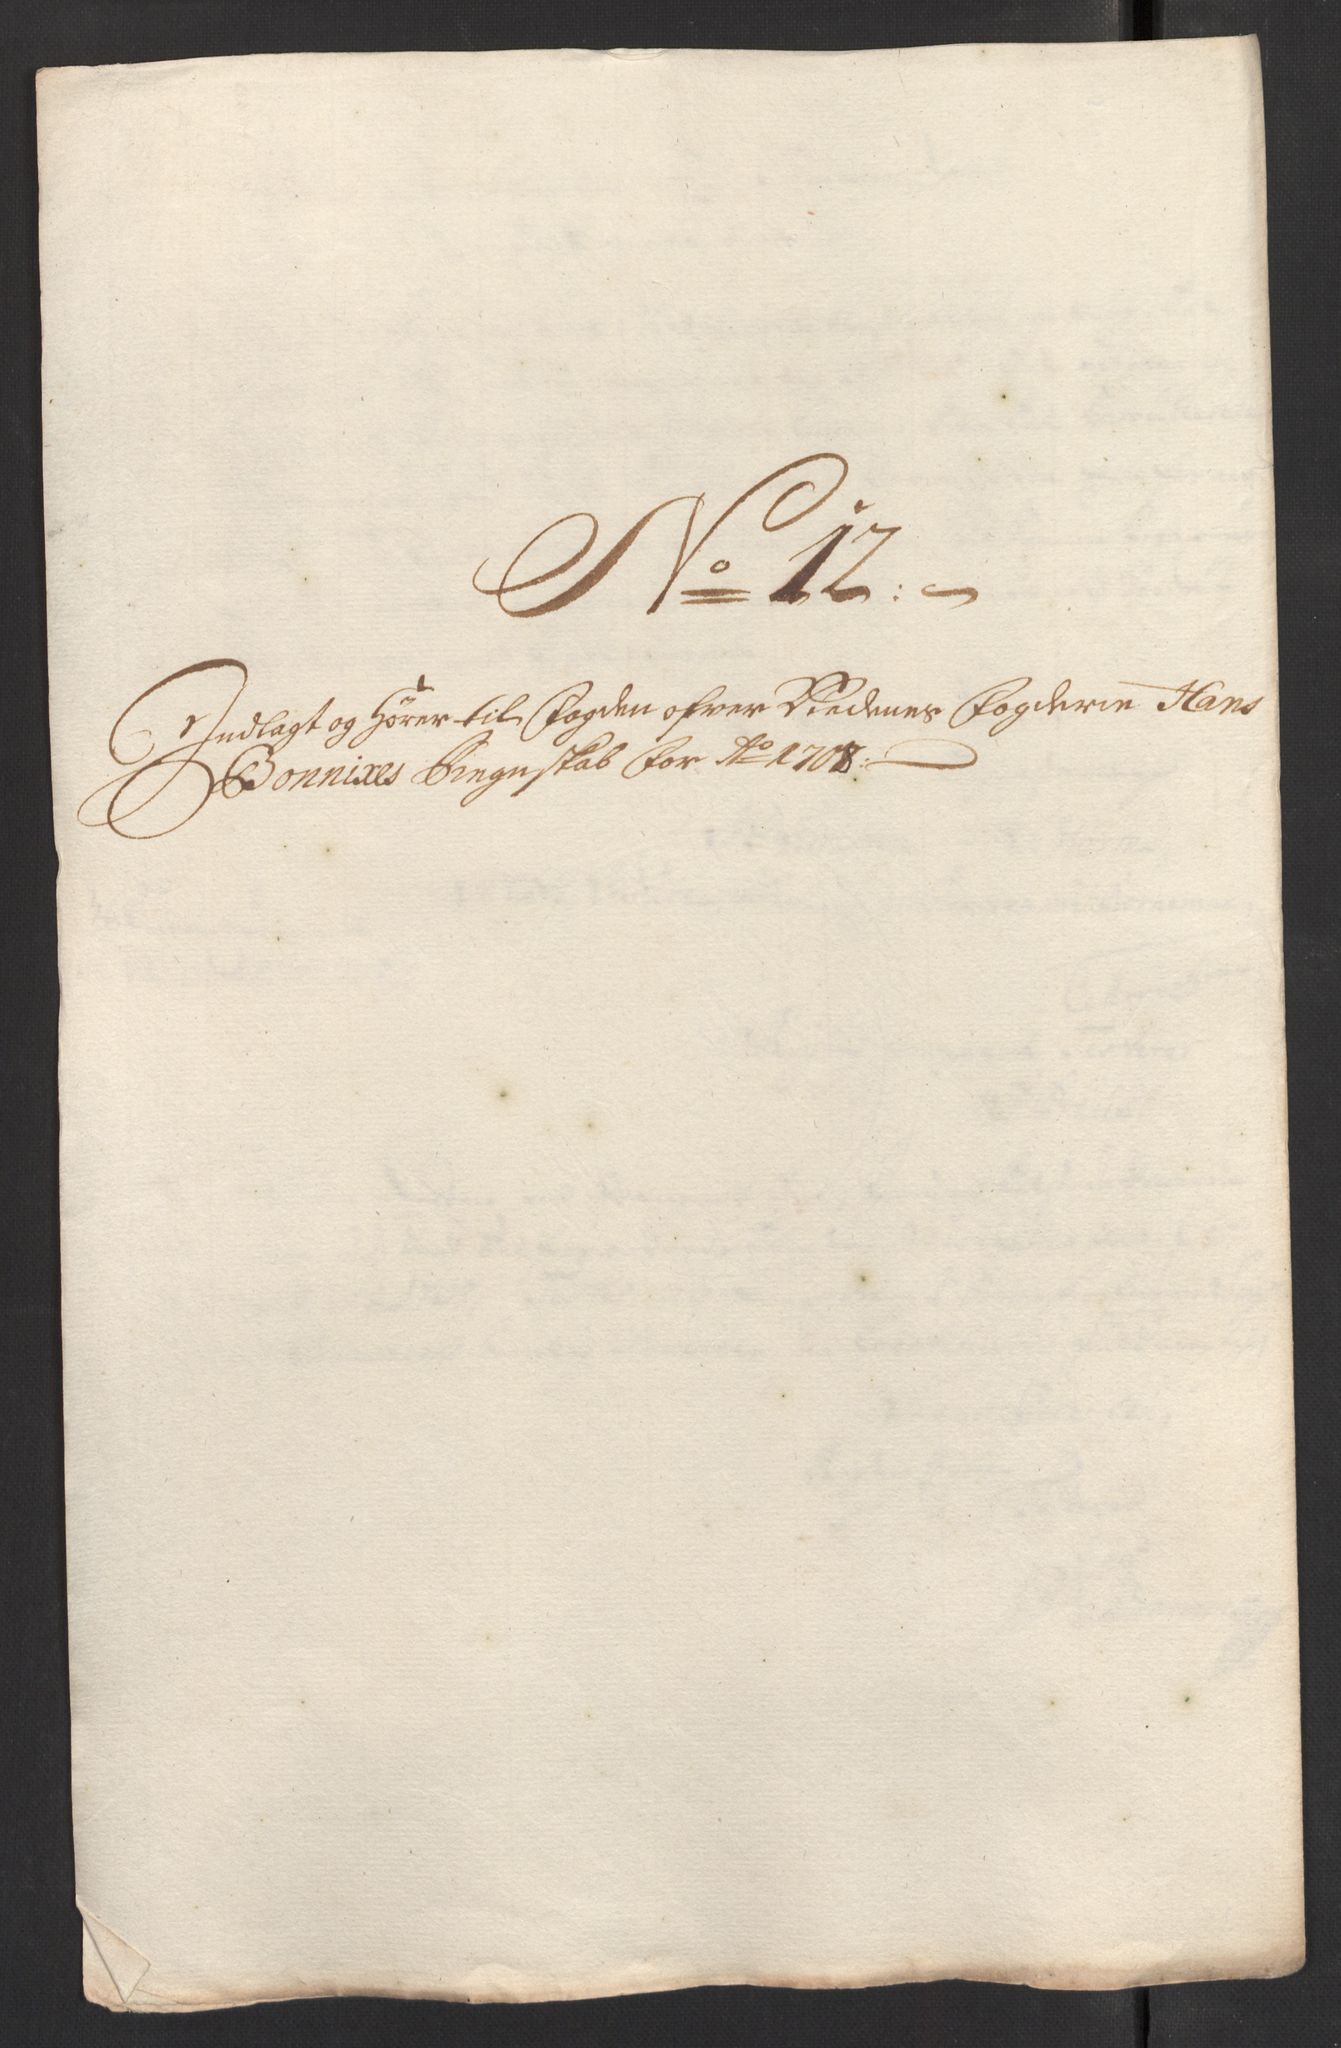 No 12:
Indlagt og hörer til Fogden ofver Nedenes Fogderie Hans
Bonnixes Regnskab for Ao 1708: